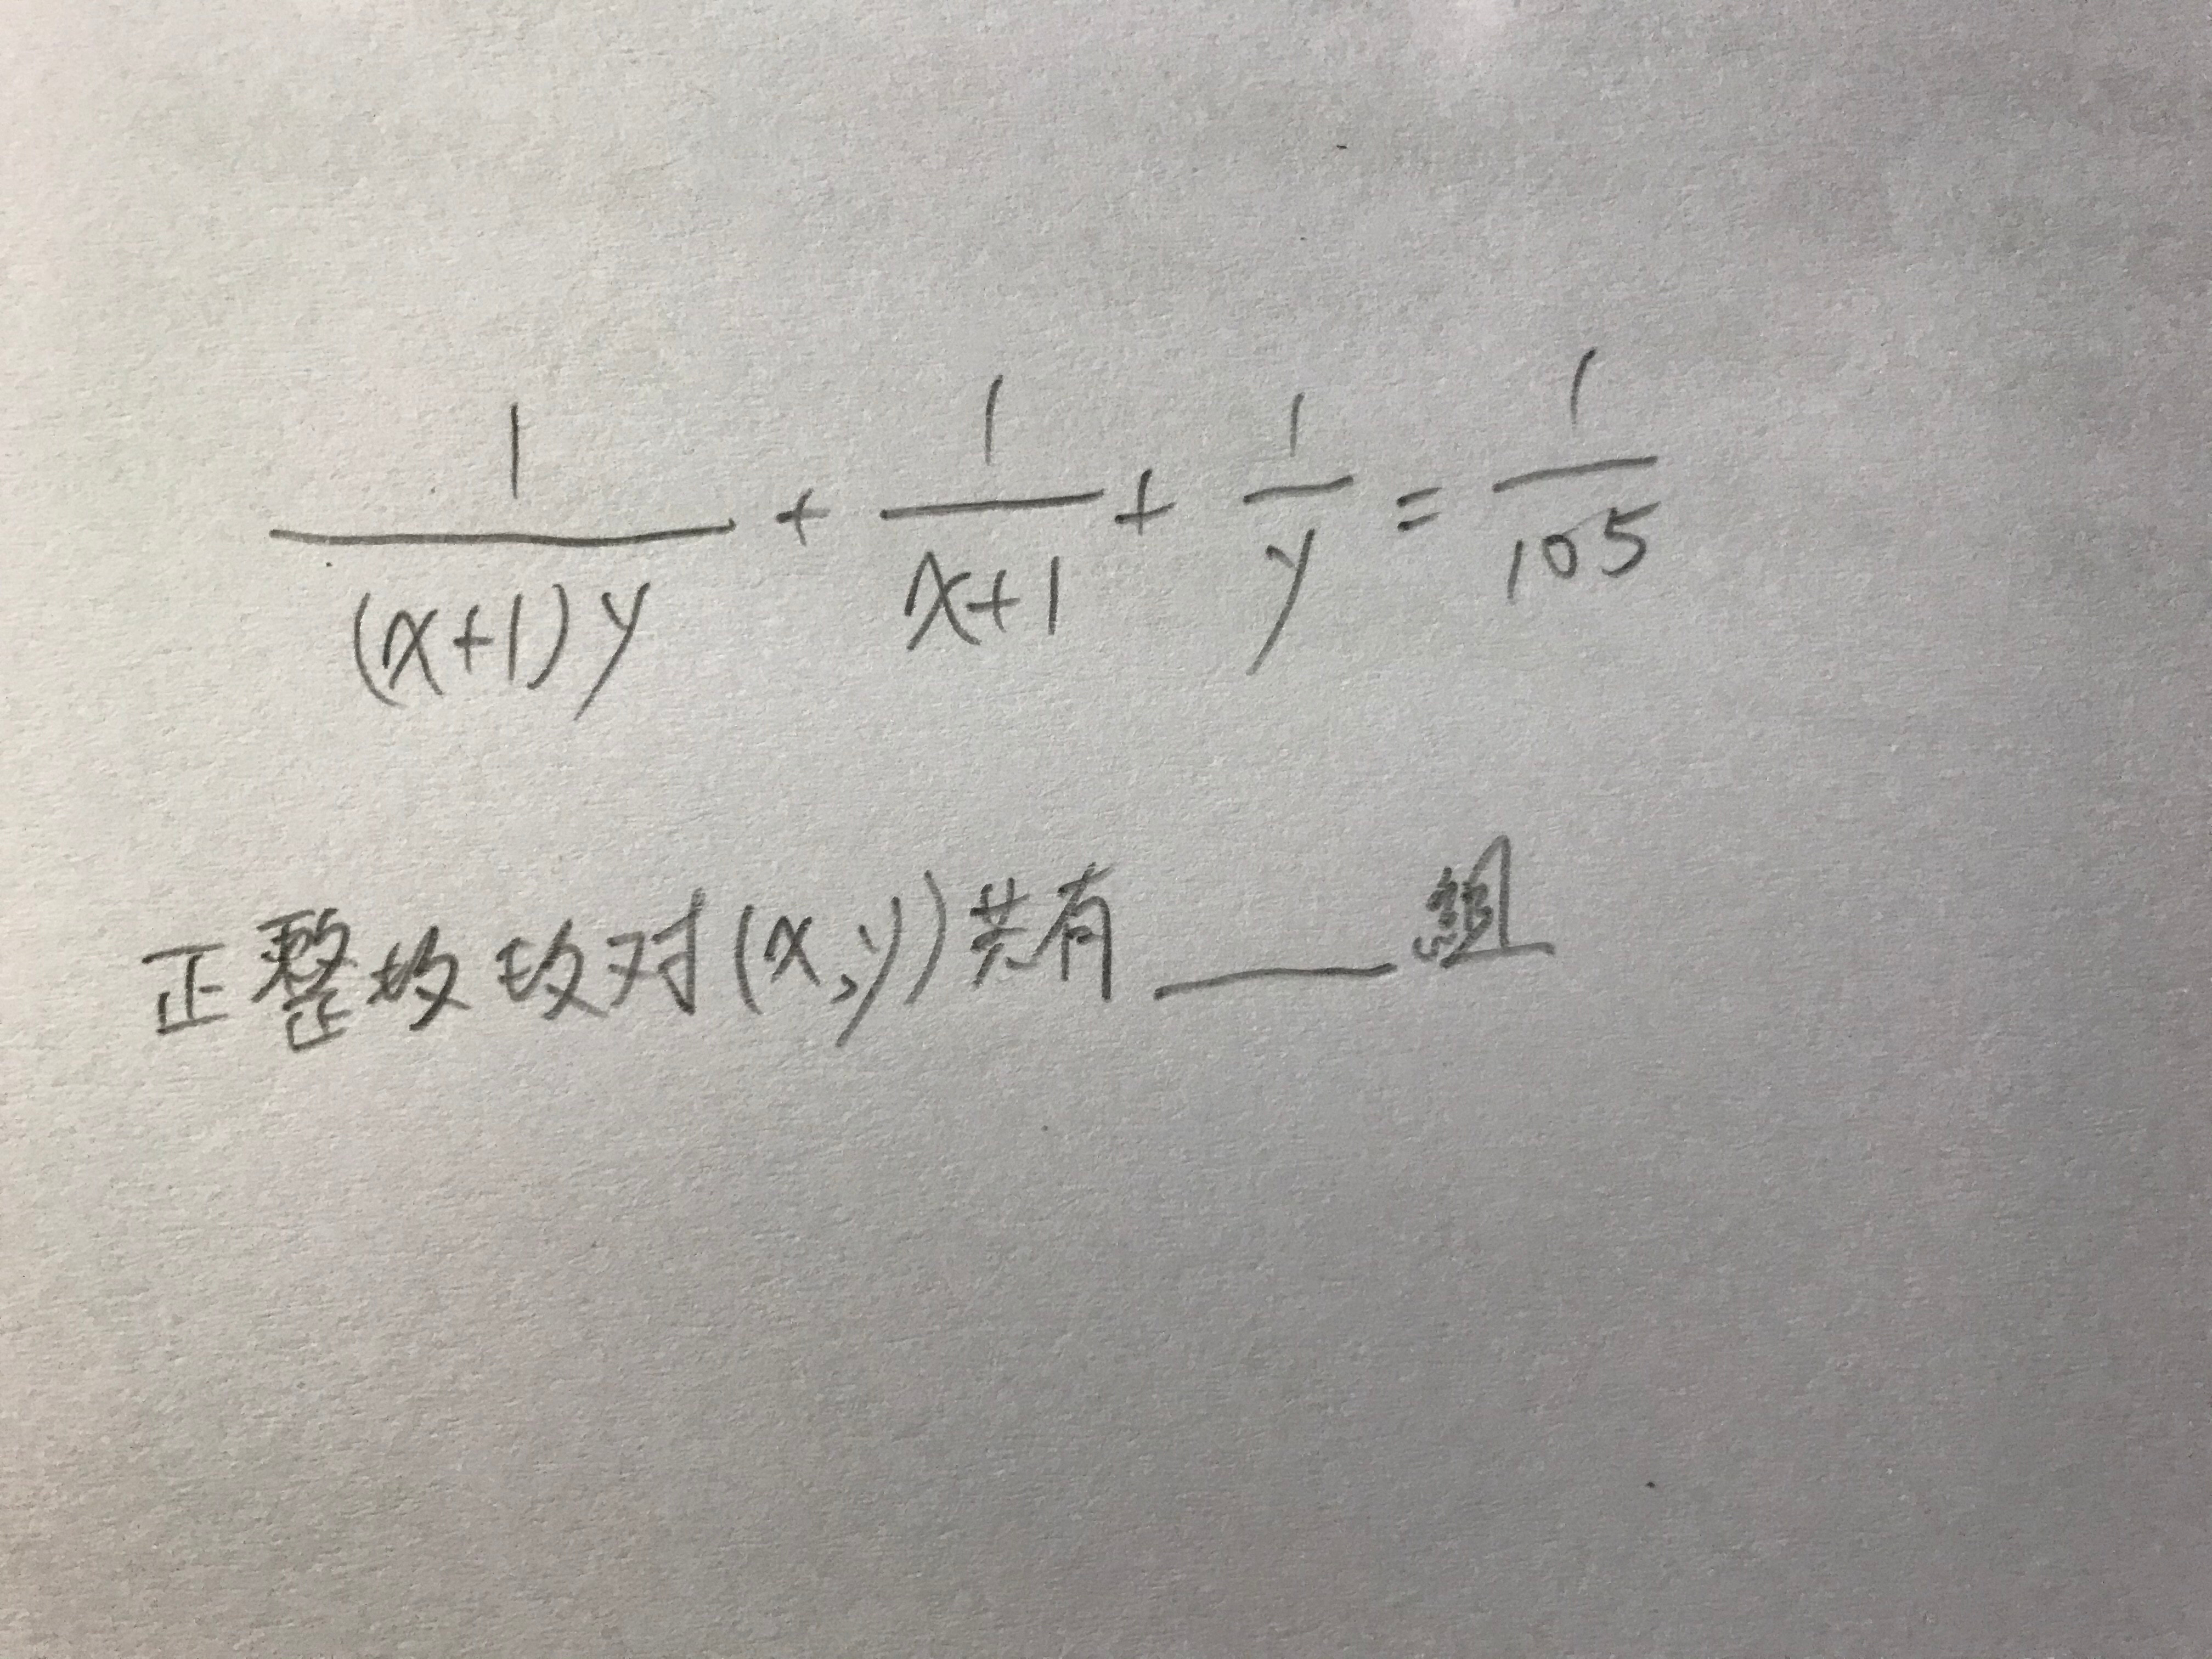 1/((x+1)y) + 1/(x+1) + 1/y = 1/105
正整数数对(x,y)共有____組